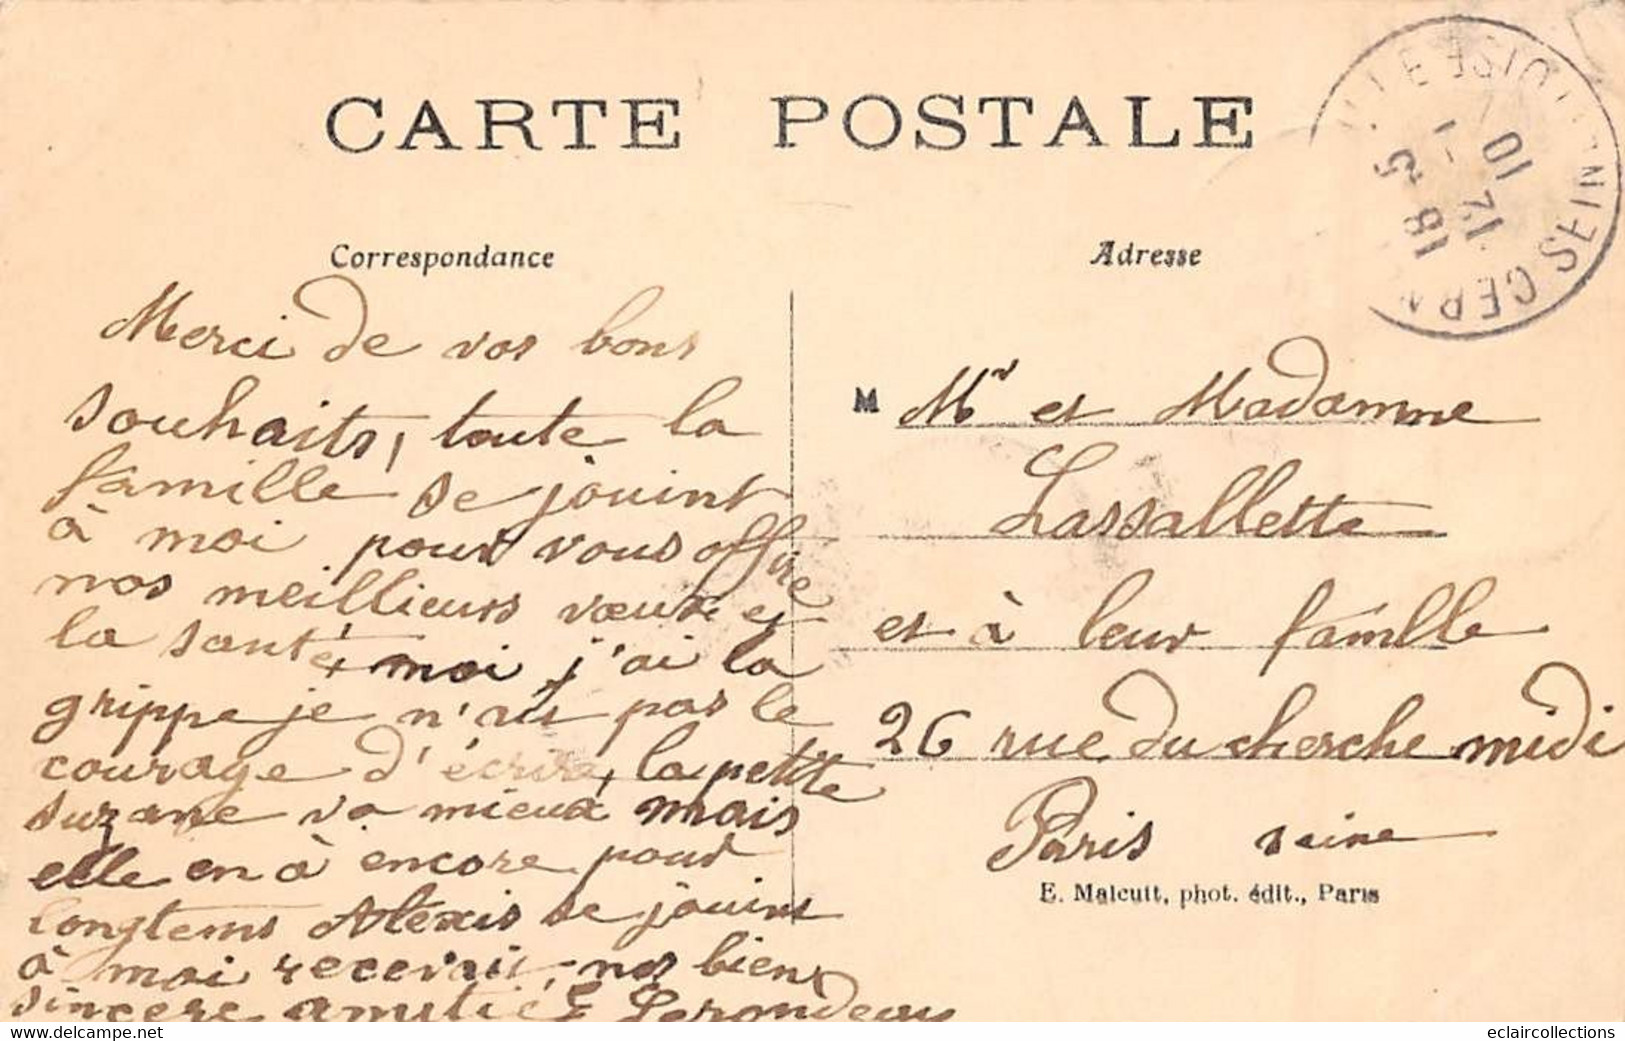 CARTE POSTALE
Correspondance
Merci de vos bons
souhaits, toute la
famille se jouint
à moi pour vous offire
nos meillieurs vœux et
la santé, moi j'ai la
grippe je n'ais pas le
courage d'écrire, la petite
suzane va mieux mais
elle en à encore pour
longtems Alexis se jouint
à moi recevait nos bien
sincere amitié E Lerondeau
Adresse
M Mr et Madamme
Lassallette
et à leur famille
26 rue du cherche midi
Paris seine
E. Malcuit, phot. édit., Paris
SEINE
18 25
12 - 1
10
www.delcampe.net
eclaircollections